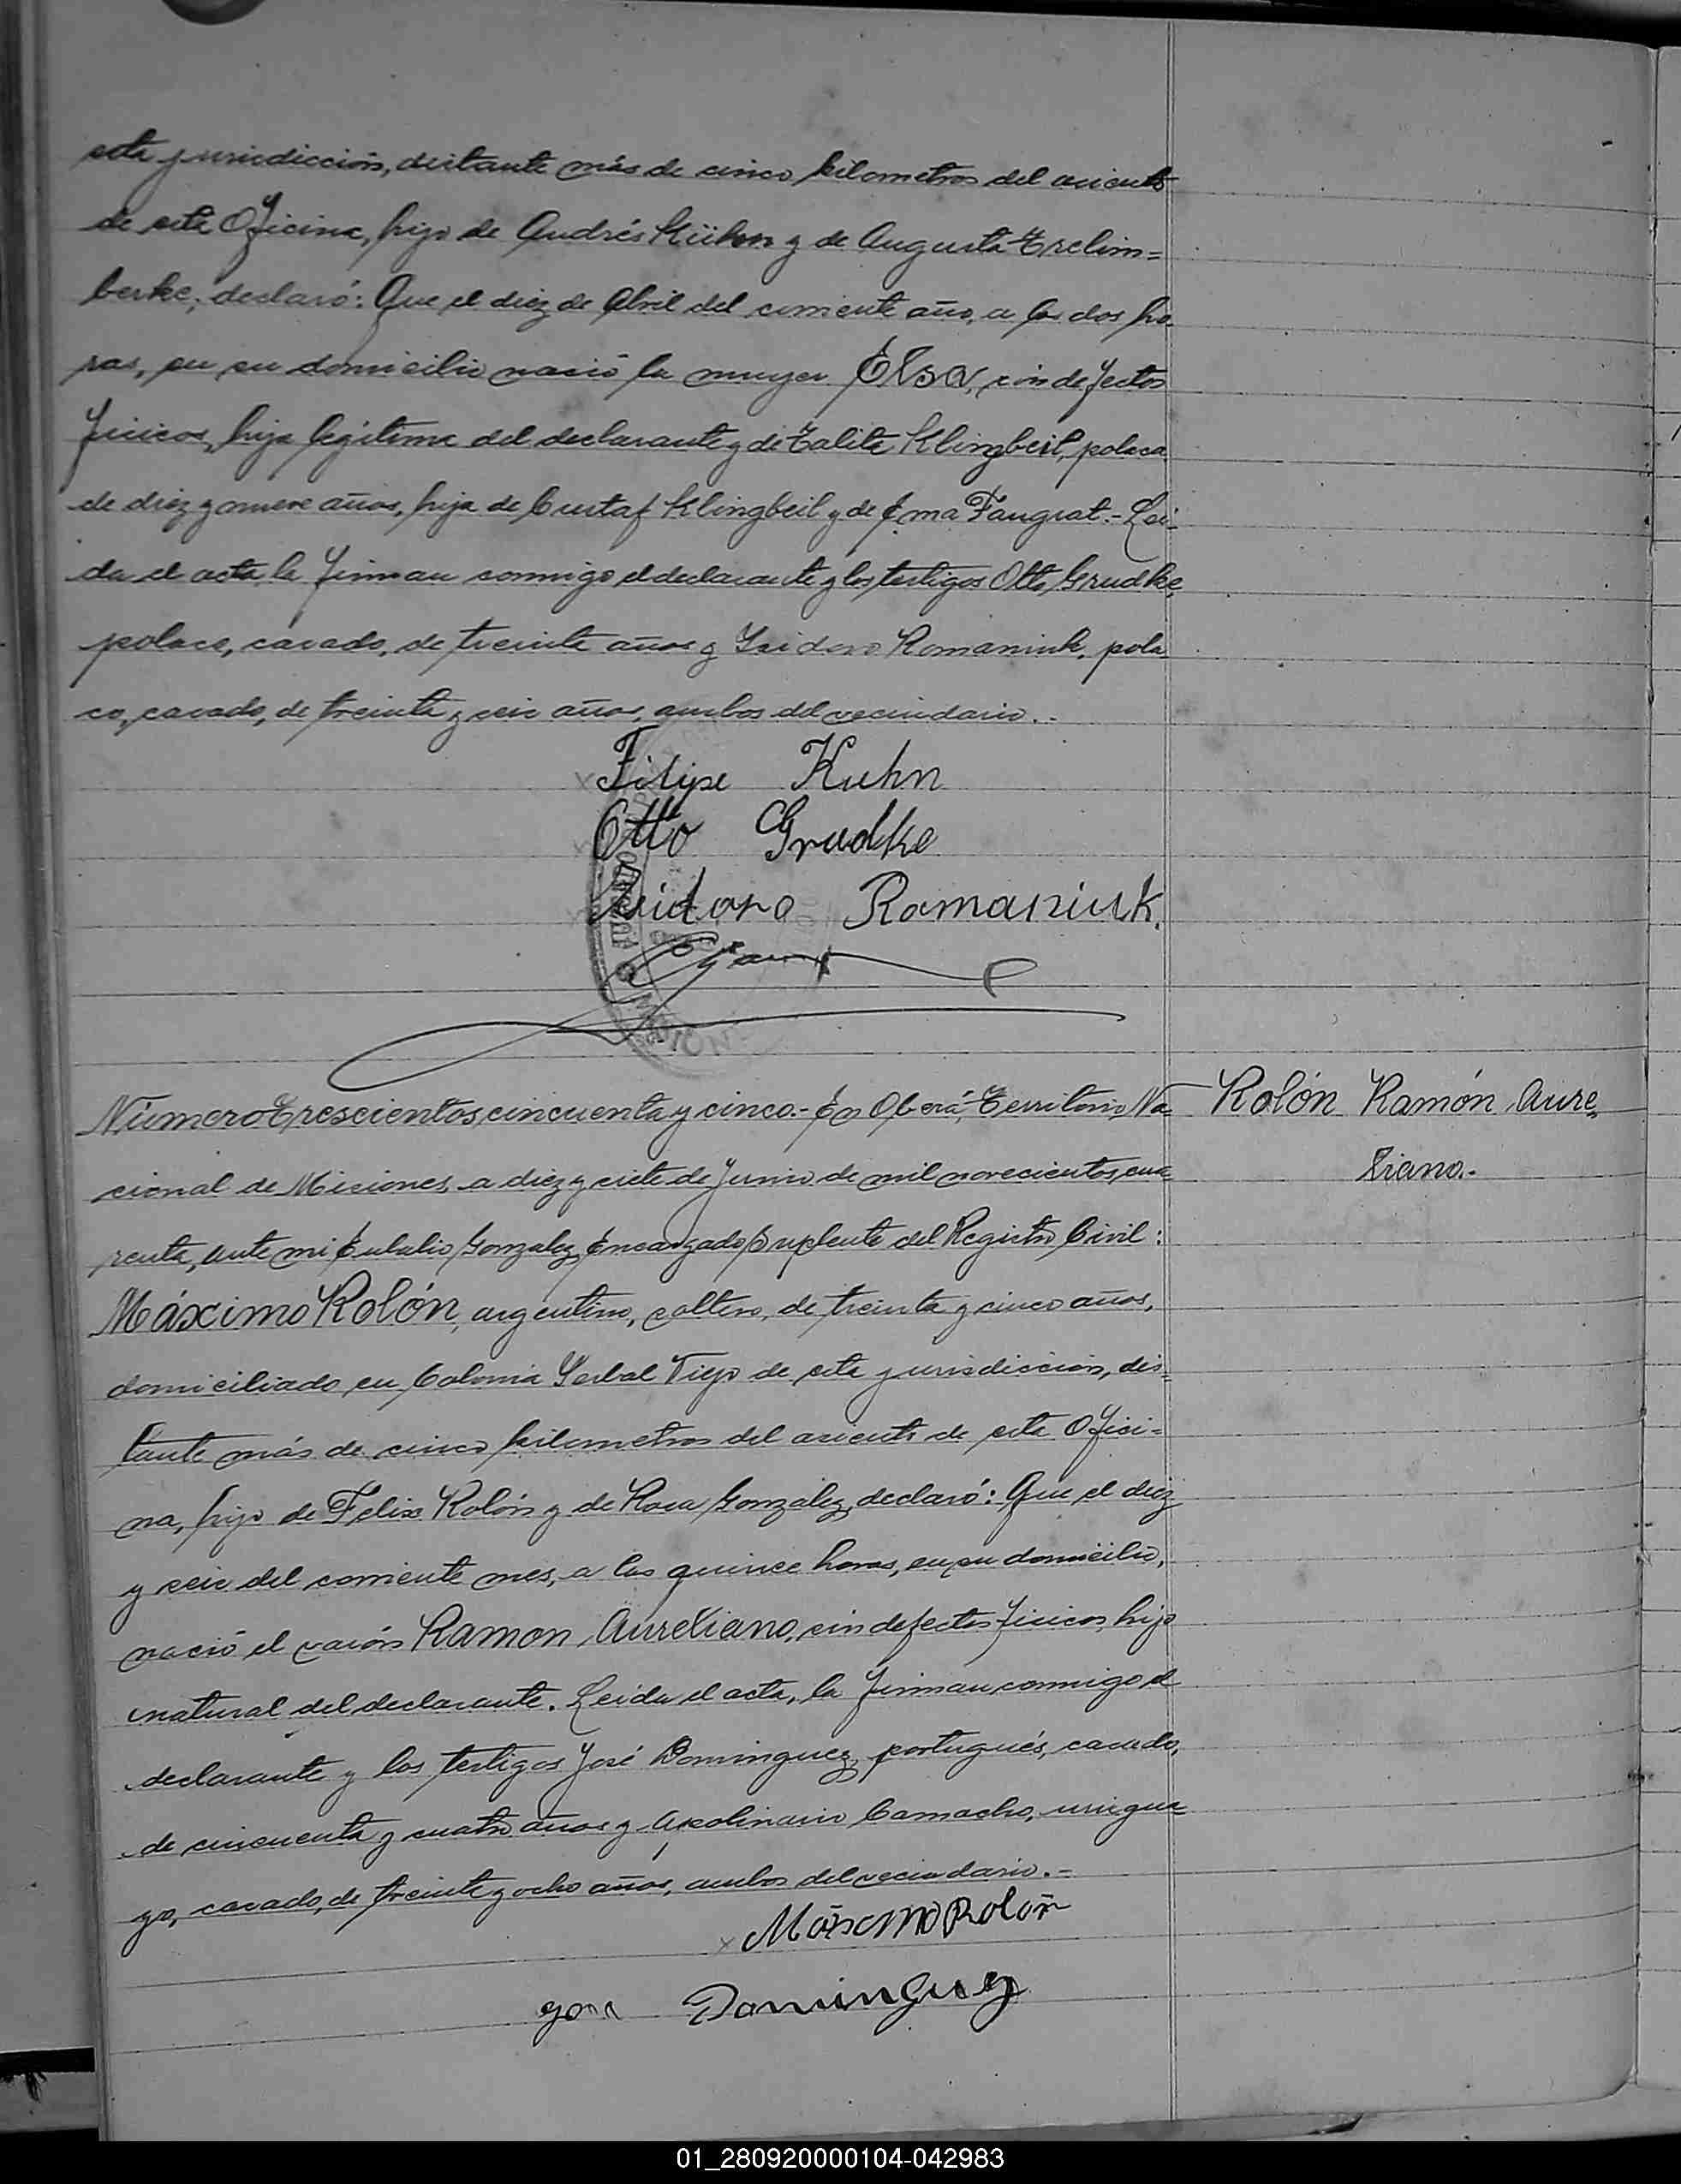 esta jurisdicción, distante más de cinco kilometros del asiento
de esta Oficina, hijo de Andrés Kühn y de Augusta Trelim=
berke, declaró: Que el diez de Abril del corriente año, a las dos ho-
ras, en su domicilio nació la mujer Elsa, sin defectos
físicos, hija legítima del declarante y de Talita Klingbeil, polaca
de diez y nueve años, hija de Gustaf Klingbeil y de Ema Faugrat.- Lei-
da el acta la firman conmigo el declarante y los testigos Otto Grudke,
polaco, casado, de treinta años y Isidoro Romaniuk, pola-
co, casado, de treinta y seis años, ambos del vecindario.-
Filipe Kuhn
Otto Grudke
Isidoro Romaniuk.
Número Trescientos cincuenta y cinco.- En Oberá, Territorio Na-
Rolón Ramón Aure-
liano.-
cional de Misiones, a diez y siete de Junio de mil novecientos cua-
renta, ante mi Eulalio Gonzalez, Encargado Suplente del Registro Civil:
Máximo Rolón, argentino, soltero, de treinta y cinco años,
domiciliado en Colonia Yerbal Viejo de esta jurisdicción, dis=
tante más de cinco kilometros del asiento de esta Ofici=
na, hijo de Felix Rolón y de Rosa González, declaró: Que el diez
y seis del corriente mes, a las quince horas, en su domicilio,
nació el varón Ramon Aureliano, sin defectos físicos, hijo
natural del declarante. Leida el acta, la firman conmigo el
declarante y los testigos José Dominguez, portugués, casado,
de cincuenta y cuatro años y Apolinario Camacho, urugua-
yo, casado, de treinta y ocho años, ambos del vecindario.=
x Máximo Rolón
Dominguez
01_280920000104-042983